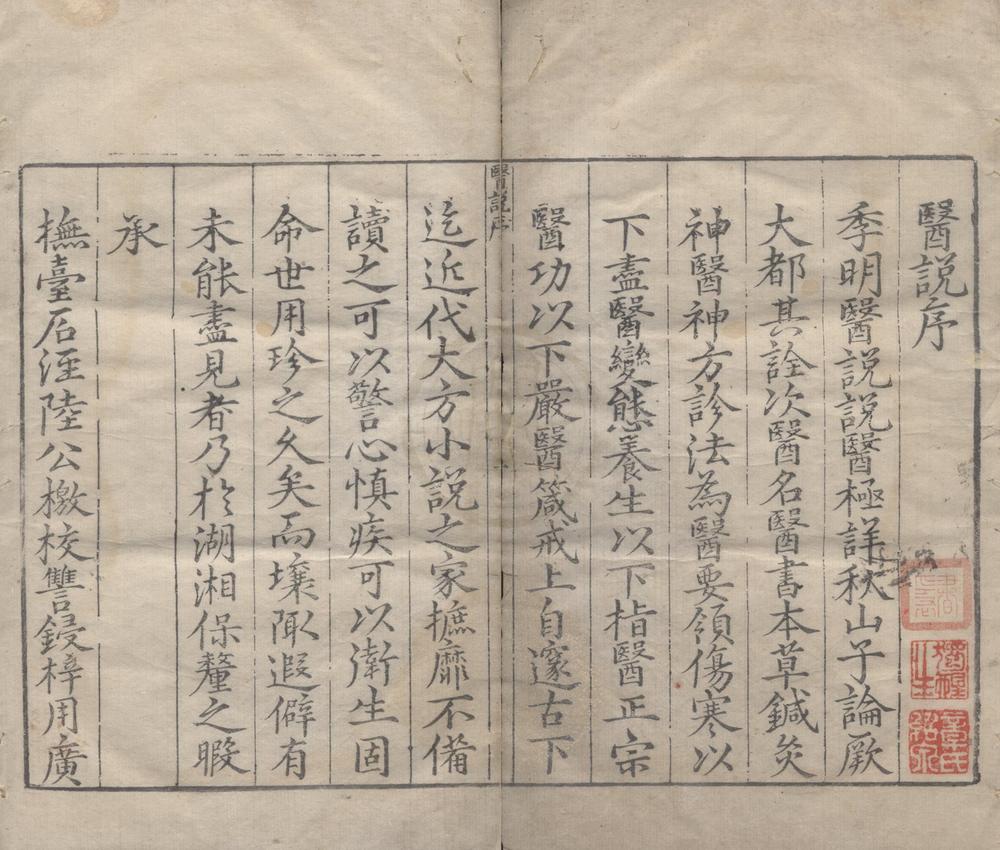 醫説序
季明醫説説醫極詳秋山子論厥
大都其詮次醫名醫書本草鍼灸
神醫神方診法為醫要領傷寒以
下盡醫變態養生以下楷醫正宗
醫功以下嚴醫箴戒上自邃古下
醫説序
迄近代大方小説之家摭靡不備
讀之可以警心慎疾可以衛生固
命世用珍之久矣而壤陬遐僻有
未能盡見者乃於湖湘保釐之暇
承
撫臺石涇陸公檄校讐鋟梓用廣